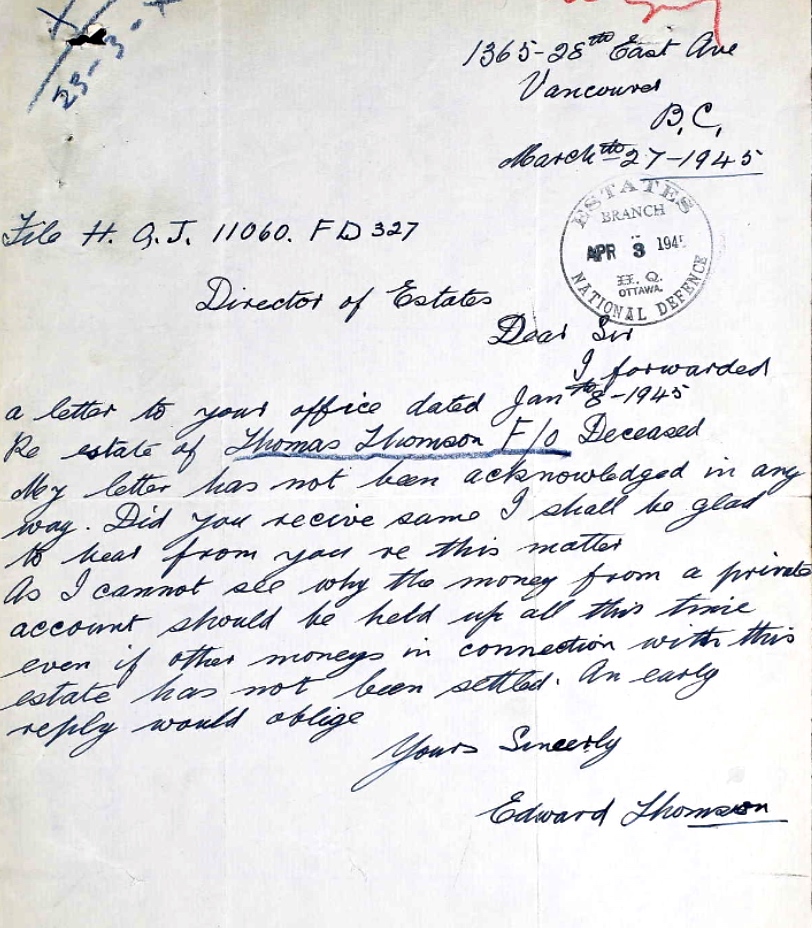 23-3-
1365-28th East Ave
Vancouver
B.C.
March th-27-1945
ESTATES
BRANCH
APR 3 194
H. Q.
OTTAWA.
NATIONAL DEFENCE
File H. Q. J. 11060. FD 327
Director of Estates
Dear Sir
I forwarded
a letter to your office dated Jan th 8-1945
Re estate of Thomas Thomson F/O Deceased
My letter has not been acknowledged in any
way. Did you recive same I shall be glad
to hear from you re this matter
As I cannot see why the money from a private
account should be held up all this time
even if other moneys in connection with this
estate has not been settled. An early
reply would oblige
Yours Sincerly
Edward Thomson